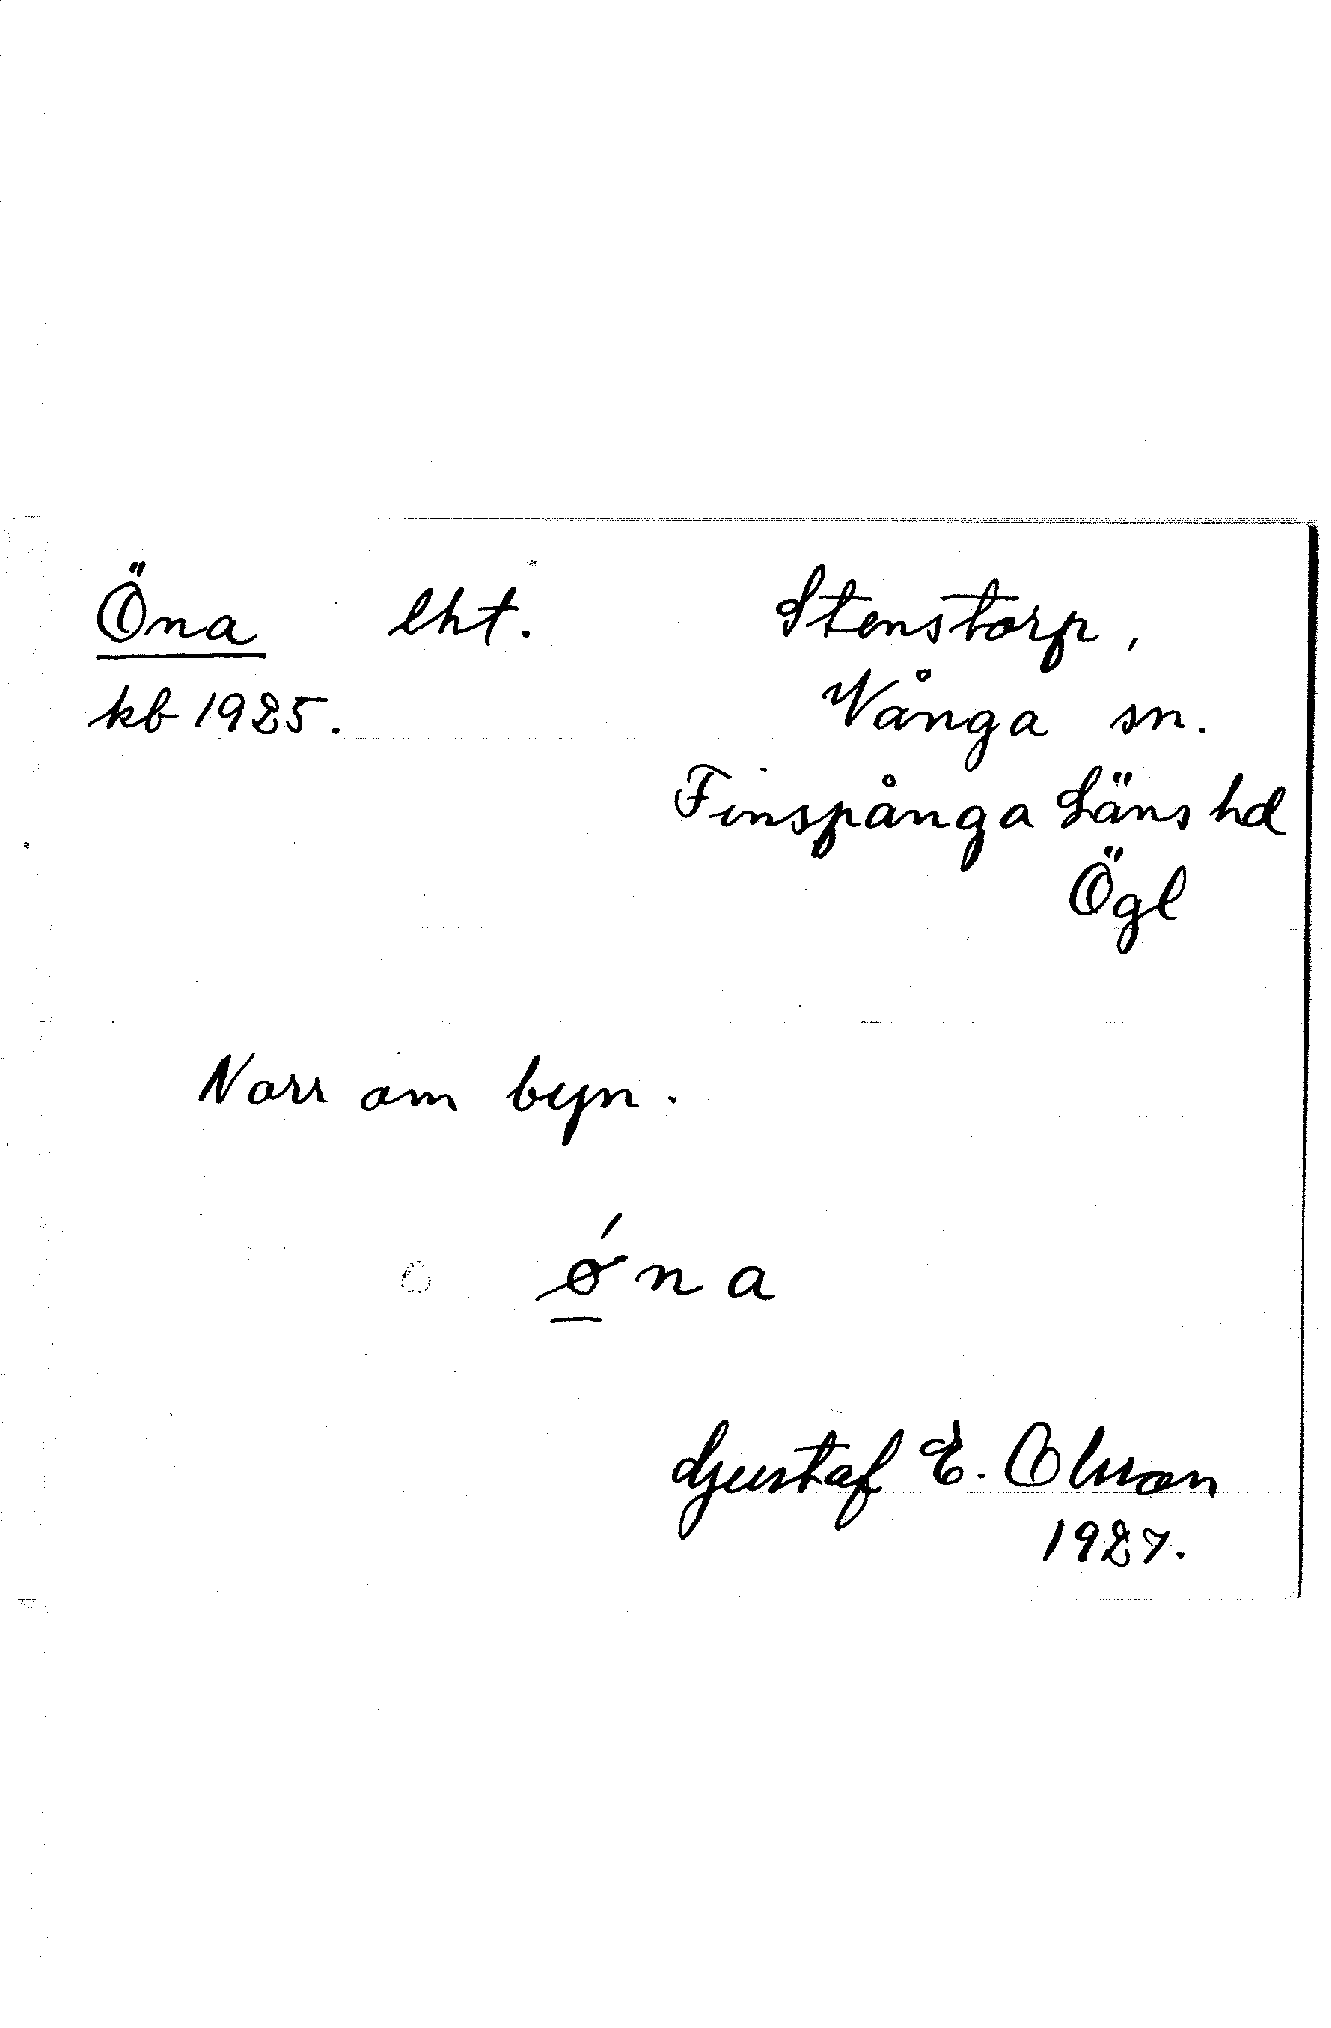 Öna lht. Stenstorp,
kb 1925. Vånga sn.
Finspånga Läns hd
Ögl
Norr om byn.
ǿna
Gustaf E. Olsson
1927.